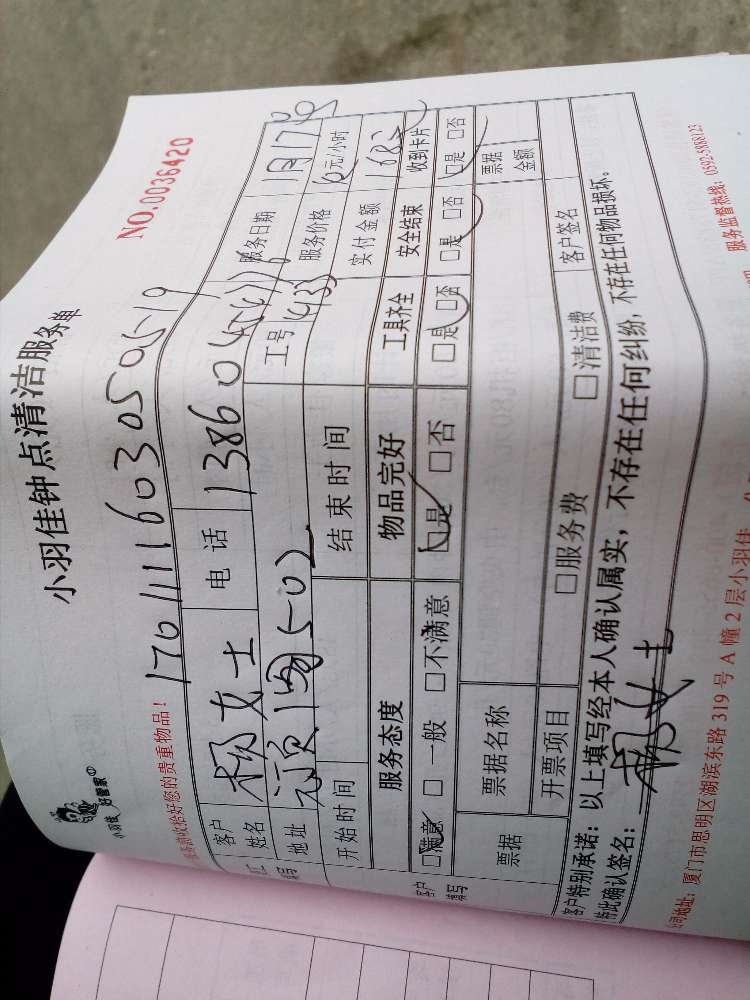 小羽佳 好管家
小羽佳钟点清洁服务单
NO.0036420
服务前收拾好您的贵重物品！
客户姓名 杨女士 电话 服务日期 11月17
地址 工号 服务价格 元/小时
开始时间 结束时间 实付金额 168
服务态度 物品完好 工具齐全 安全结束 收到卡片
□满意 □一般 □不满意 □是 □否 □是 □否 □是 □否 □是 □否
客户填写
票据 票据名称 票据金额
开票项目 □服务费 □清洁费 客户签名
客户特别承诺：以上填写经本人确认属实，不存在任何纠纷，不存在任何物品损坏。
特此确认签名：杨女士
公司地址：厦门市思明区湖滨东路319号A幢2层小羽佳 服务监督热线：0592-5888123